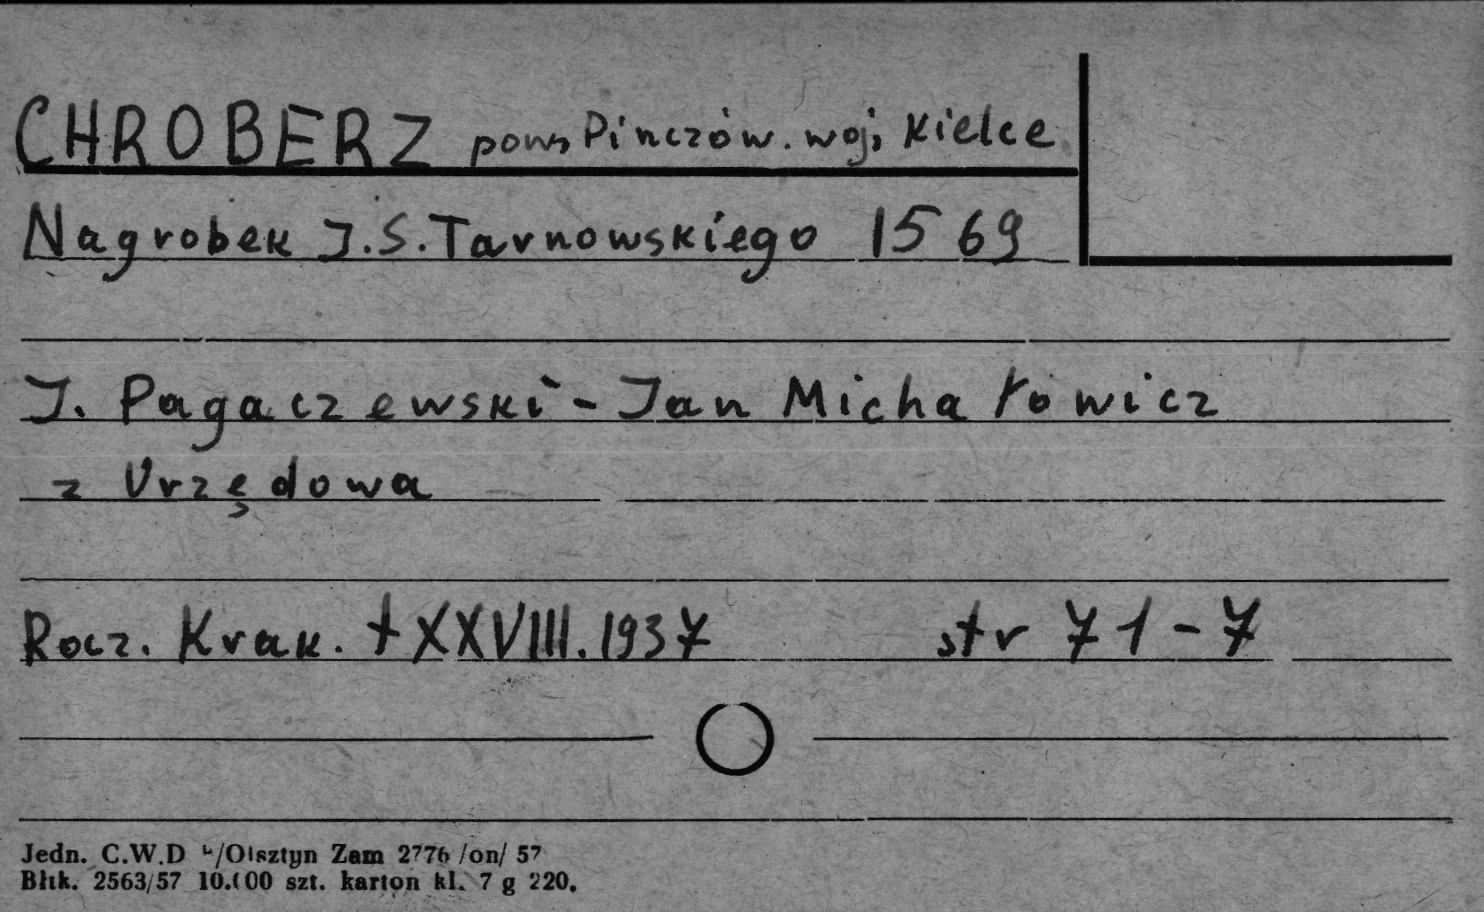 CHROBERZ pow, Pinczów. woj, Kielce
Nagrobek J.S. Tarnowskiego 1569
J. Pagaczewski - Jan Michałowicz
z Urzędowa
Rocz. Krak. t XXVIII. 1937 str 71-7
Jedn. C.W.D /Olsztyn Zam 2776 /on/ 57
Błtk. 2563/57 10.000 szt. karton kl. 7 g 220.